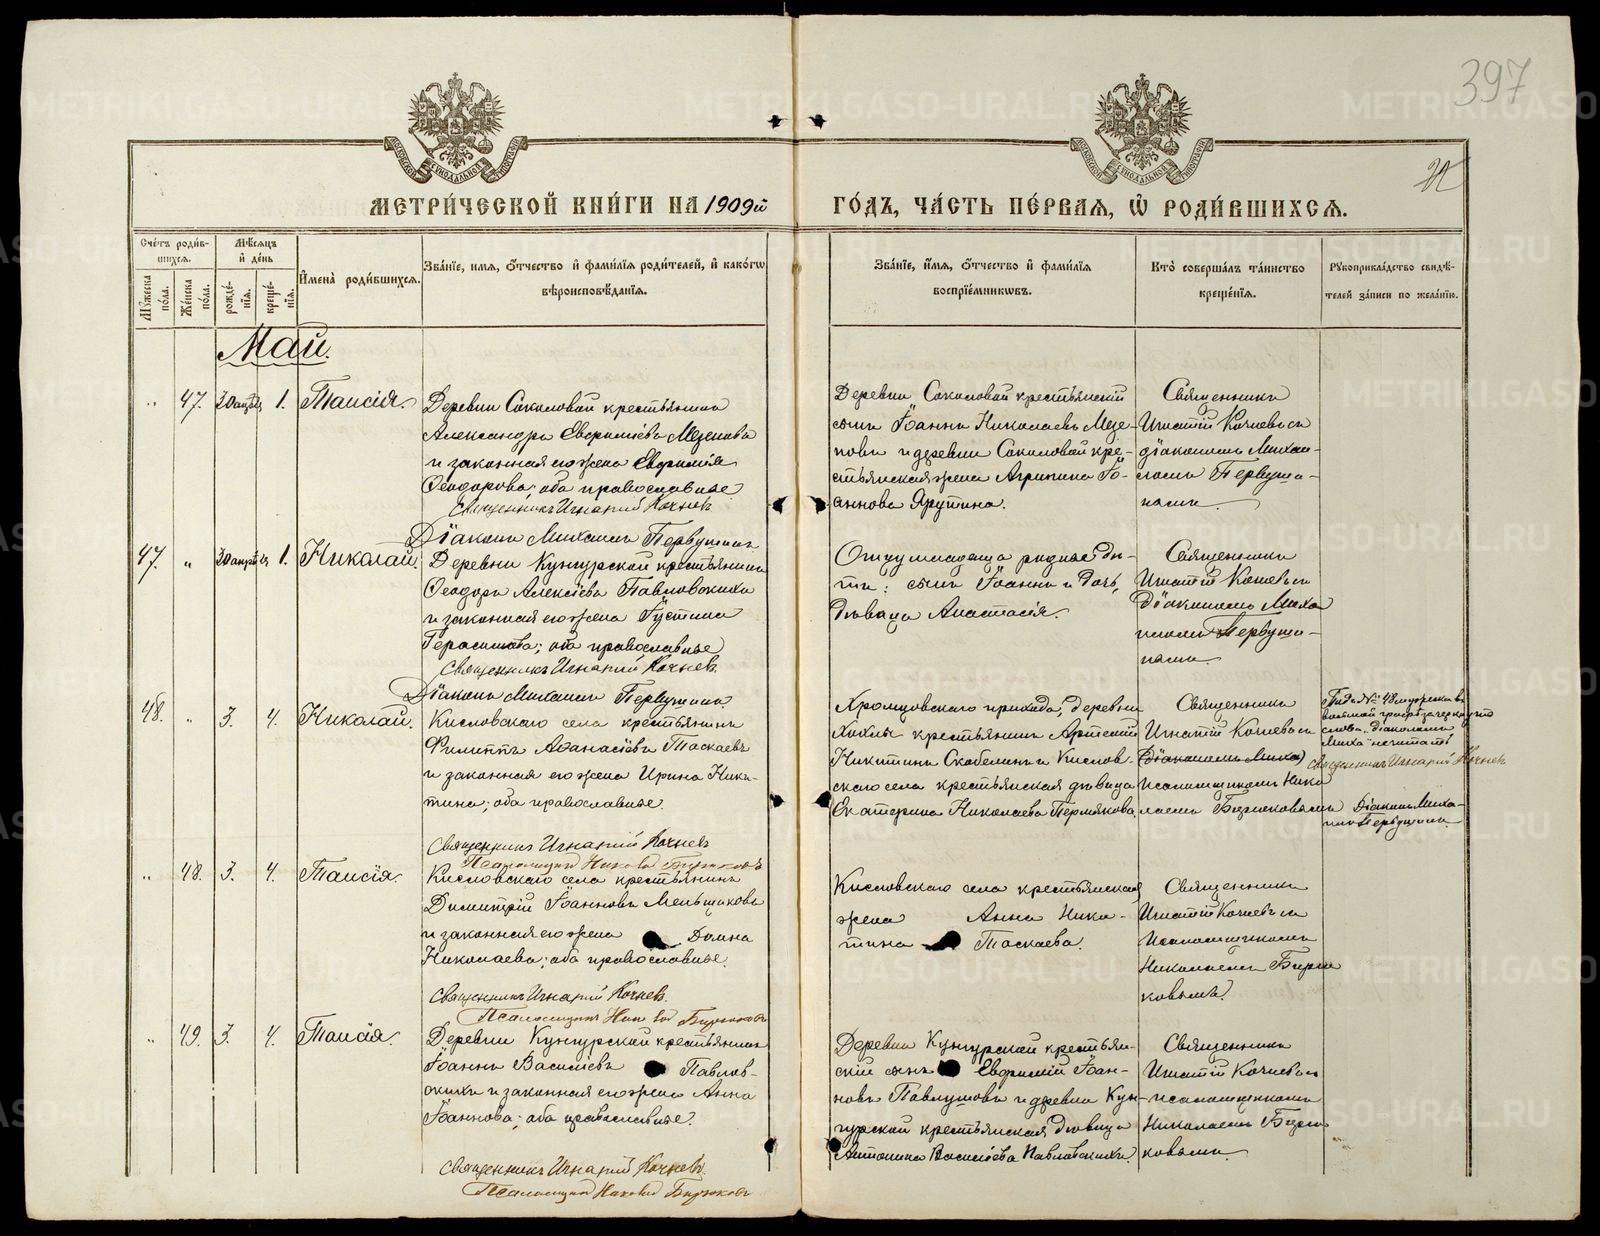 397
МЕТРИ́ЧЕСКОЙ КНИ́ГИ НА 1909й ГО́ДЪ, ЧА́СТЬ ПЕ́РВАѦ, Ѡ҆ РОДИ́ВШИХСѦ.
Сче́тъ роди́в-
шихсѧ.
Мѣ́сѧцъ
и҆ де́нь
Мꙋ́жеска
по́ла.
Же́нска
по́ла.
рожде́-
нїѧ.
креще́-
нїѧ.
И҆мена̀ роди́вшихсѧ.
Зва́нїе, и́мѧ, ѻ҆́тчество и҆ фами́лїѧ роди́телей, и҆ како́гѡ
вѣроисповѣ́данїѧ.
Зва́нїе, и҆́мѧ, ѻ҆́тчество и҆ фами́лїѧ
воспрїе́мникѡвъ.
Кто̀ соверша́лъ та́инство
креще́нїѧ.
Рꙋкоприкла́дство свидѣ́-
телей за́писи по жела́нїю.
Май.
" 47. 30 апрѣля 1. Таисія.
Деревни Соколовой крестьянинъ
Александръ Евфиміевъ Мезеновъ
и законная его жена Евфимія
Ѳеодорова; оба православные
Священникъ Игнатій Кочневъ
Діаконъ Михаилъ Первушинъ
Деревни Соколовой крестьянскій
сынъ Іоаннъ Николаевъ Мезе-
новъ и деревни Соколовой кре-
стьянская жена Агрипина Іо-
аннова Ярутина.
Священникъ
Игнатій Кочневъ съ
діакономъ Михаи-
ломъ Первуши-
нымъ.
47. " 30 апрѣля 1. Николай.
Деревни Кунгурской крестьянинъ
Ѳеодоръ Алексіевъ Павловскихъ
и законная его жена Іустина
Герасимова; оба православные
Священникъ Игнатій Кочневъ.
Діаконъ Михаилъ Первушинъ.
Отцу младенца родные дѣ-
ти: сынъ Іоаннъ и дочь,
дѣвица Анастасія.
Священникъ
Игнатій Кочневъ съ
діакономъ Миха
иломъ Первуши-
нымъ.
48. " 3. 4. Николай.
Кисловскаго села крестьянинъ
Филиппъ Аѳанасіевъ Таскаевъ
и законная его жена Ирина Ники-
тина; оба православные.
Священникъ Игнатій Кочневъ
Псаломщикъ Николай Бирюковъ
Хромцовскаго прихода, деревни
Никитинъ Скобелинъ и Кислов-
скаго села крестьянская дѣвица
Екатерина Николаева Пермякова.
Священникъ
Игнатій Кочневъ съ
(діакономъ Миха)
псаломщикомъ Нико
лаемъ Бирюковымъ
слова „діакономъ
Миха" не читать
Священникъ Игнатій Кочневъ
Діаконъ Миха-
илъ Первушинъ.
" 48. 3. 4. Таисія.
Кисловскаго села крестьянинъ
Димитрій Іоанновъ Меньщиковъ
и законная его жена Домна
Николаева; оба православные.
Священникъ Игнатій Кочневъ.
Псаломщикъ Николай Бирюковъ
Кисловскаго села крестьянская
жена Анна Ники-
тина Таскаева.
Священникъ
Игнатій Кочневъ съ
псаломщикомъ
Николаемъ Бирю
ковымъ.
" 49. 3. 4. Таисія.
Деревни Кунгурской крестьянинъ
Іоаннъ Василіевъ Павлов-
скихъ и законная его жена Анна
Іоаннова; оба православные.
Священникъ Игнатій Кочневъ.
Псаломщикъ Николай Бирюковъ
Деревни Кунгурской крестьян-
скій сынъ Евфимій Іоан-
новъ Павлушовъ и деревни Кун-
гурской крестьянская дѣвица
Антонина Василіева Павловскихъ.
Священникъ
Игнатій Кочневъ съ
псаломщикомъ
Николаемъ Бирю
ковымъ.
METRIKI.GASO-URAL.RU